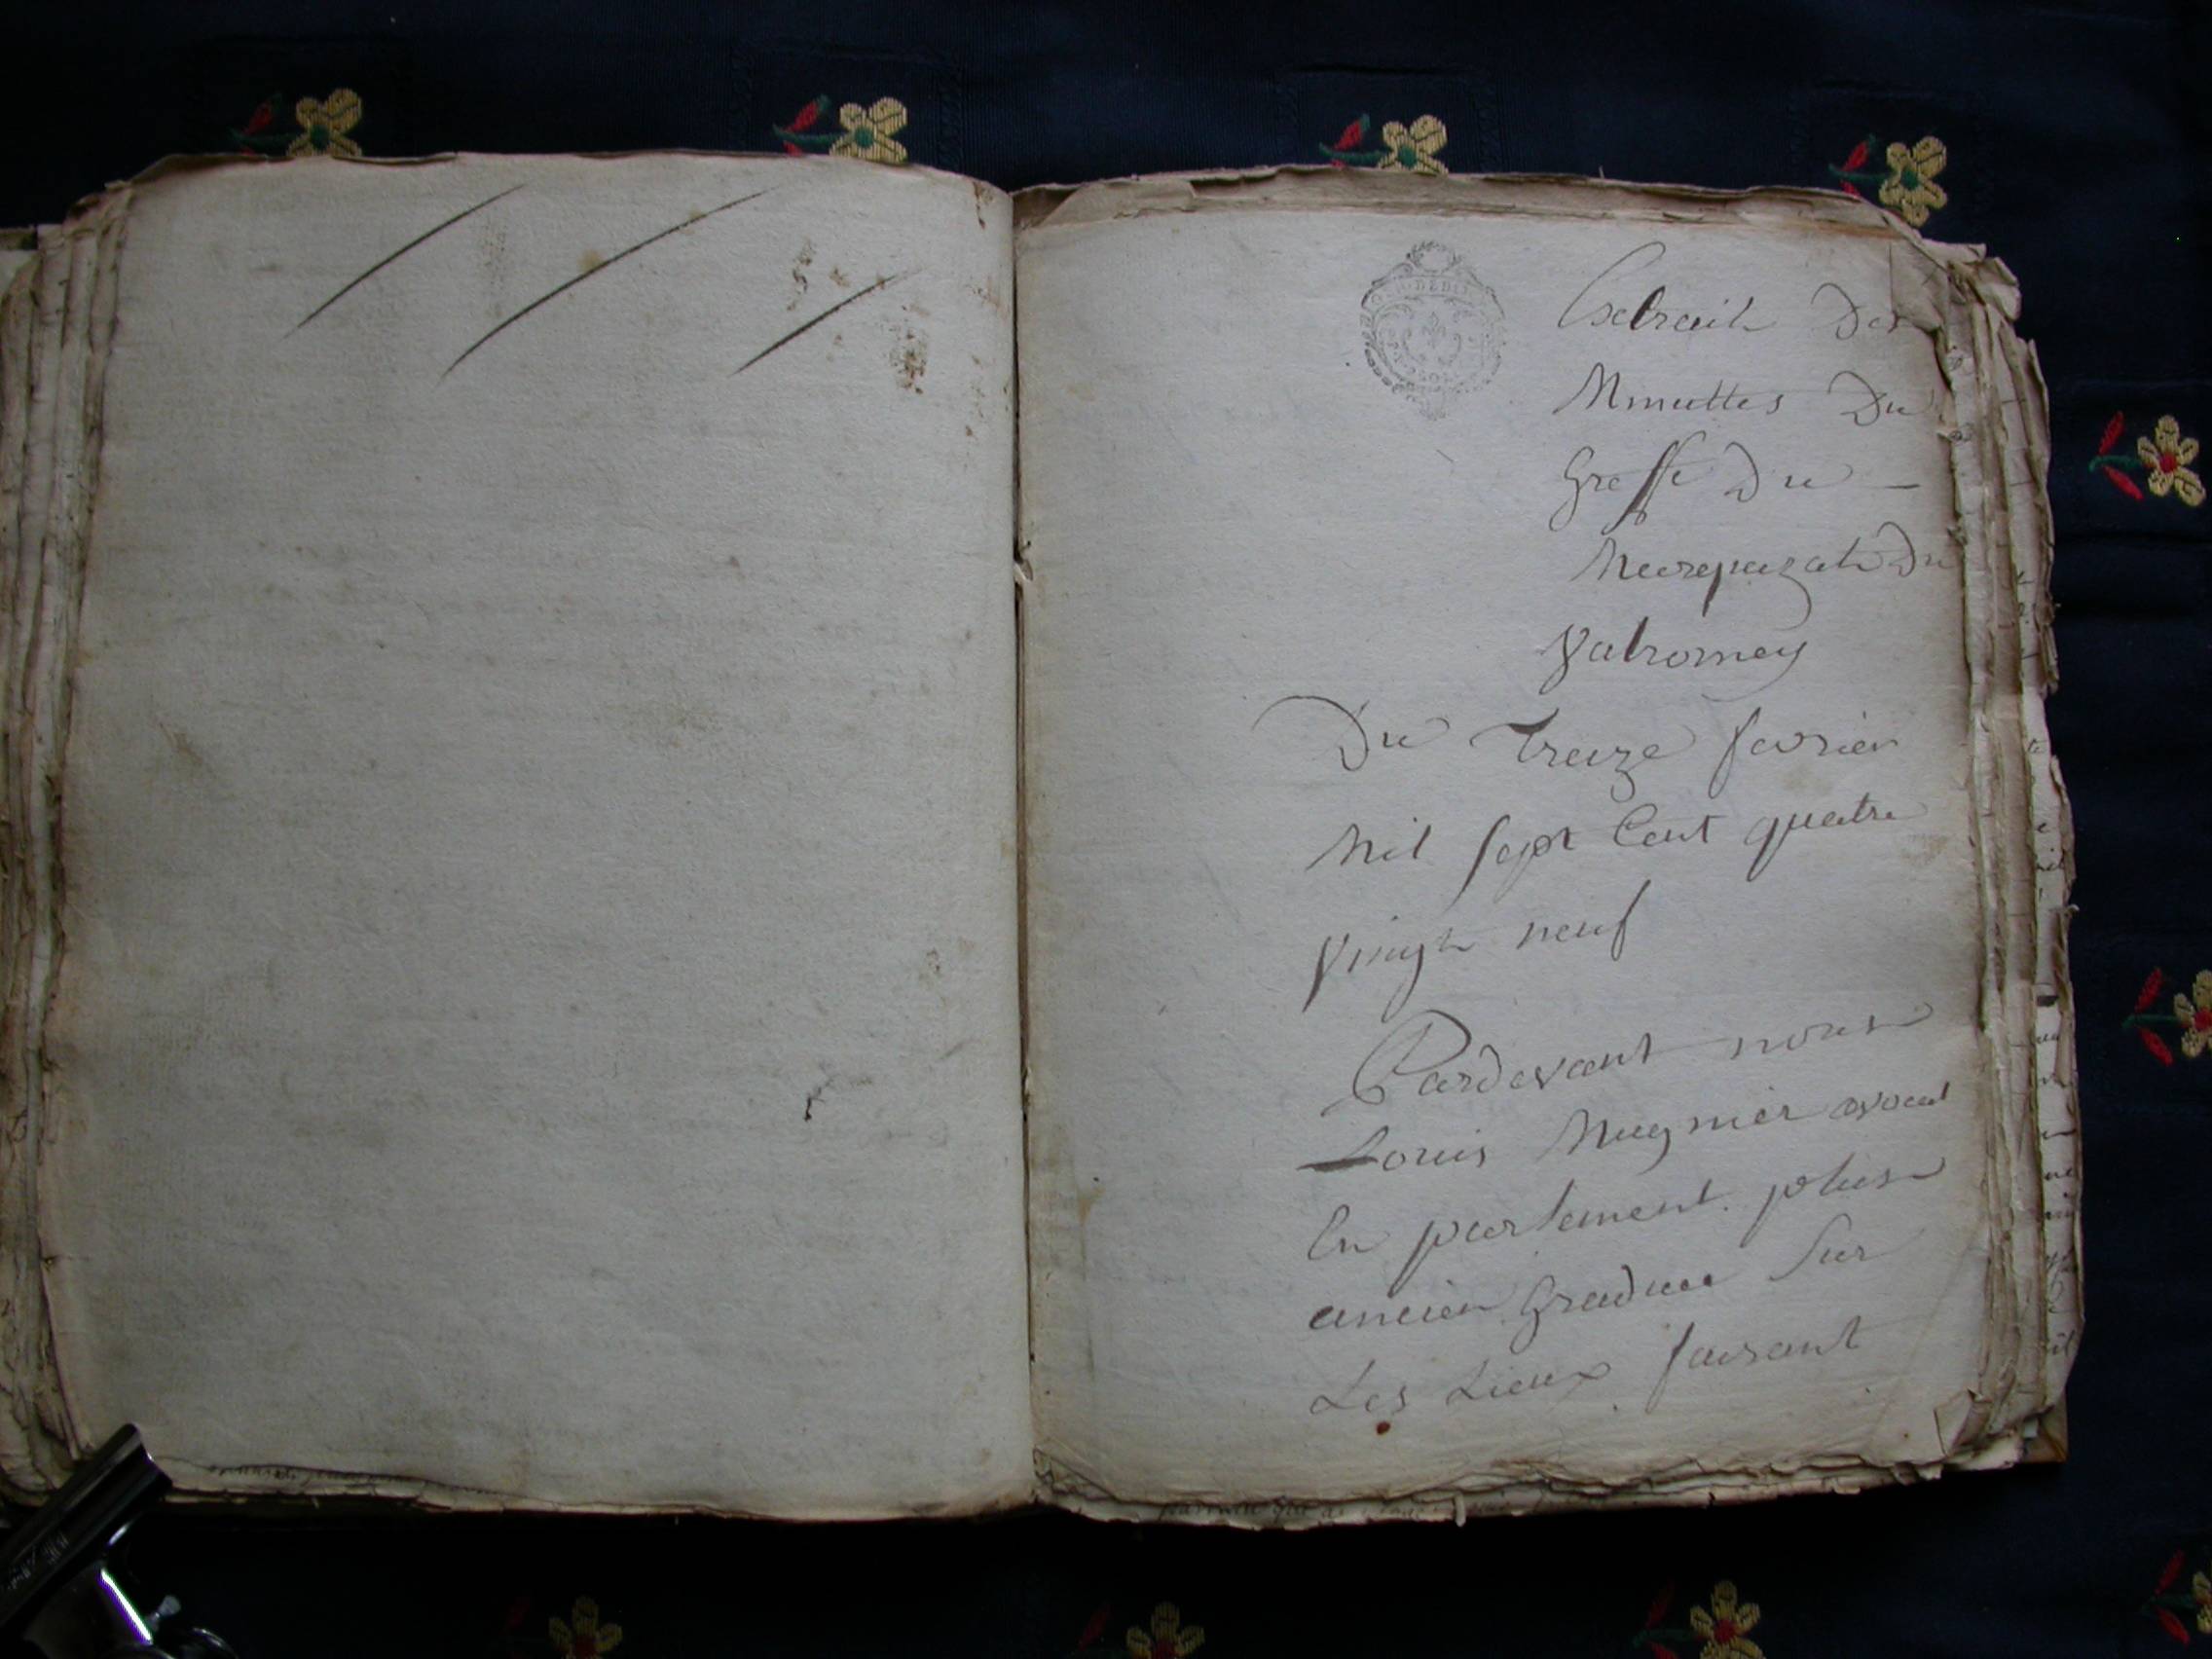 Extrait Des
Minuttes Du
Greffe Du —
Marquizat Du
Valromey
Du Treize fevrier
Mil sept Cent quatre
vingt neuf
Pardevant nous
Louis Mugnier avocat
En parlement. plus
ancien Gradué Sur
Les Lieux faisant